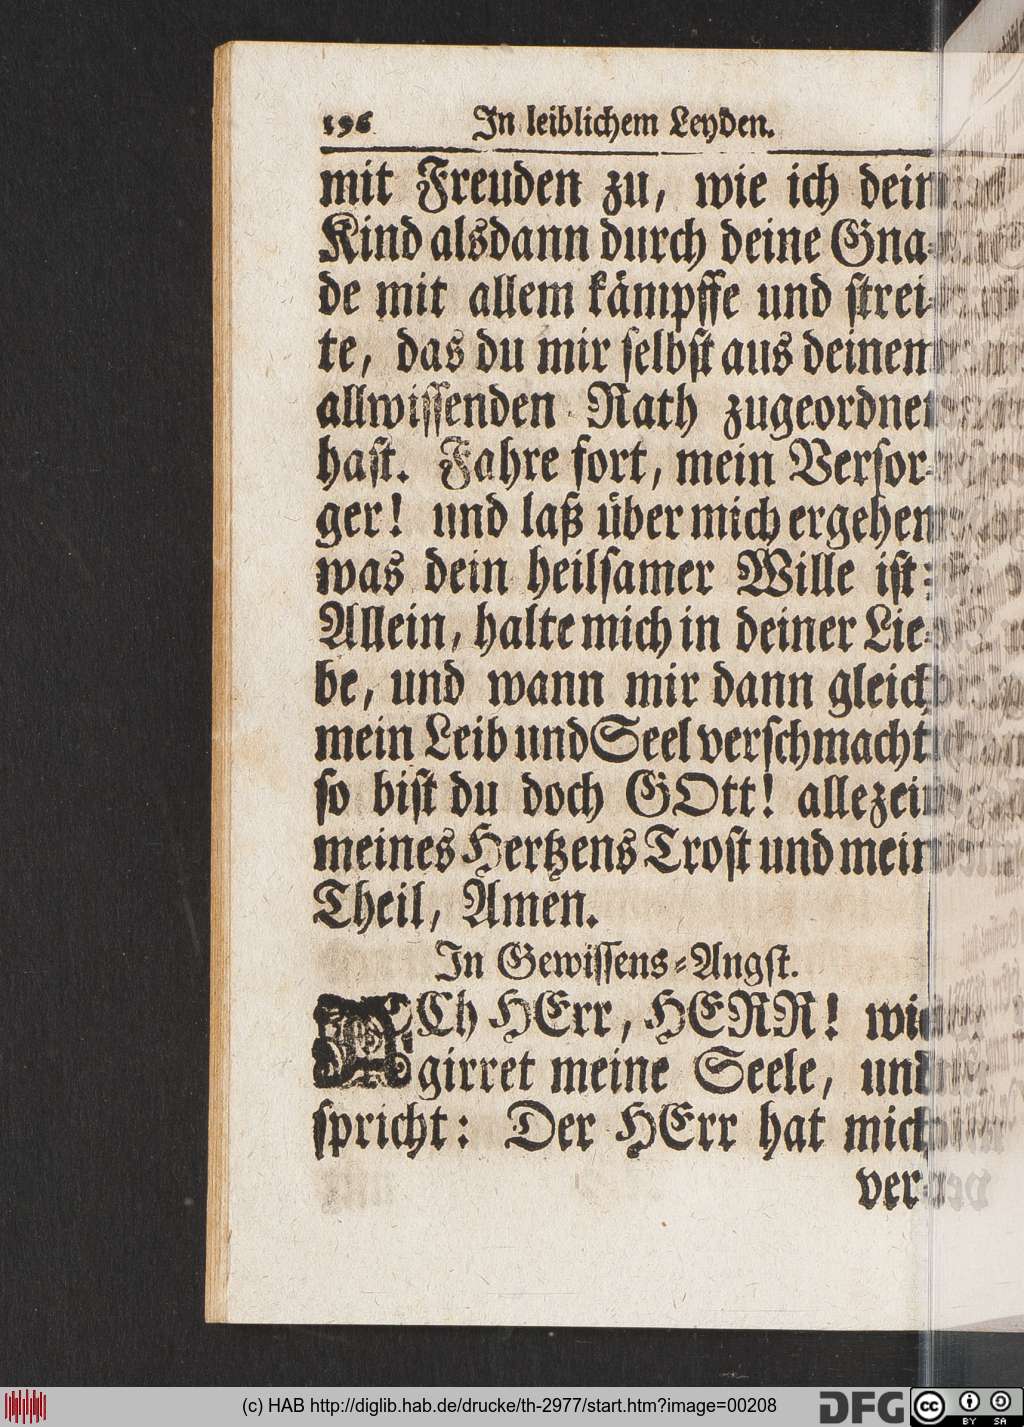 196 In leiblichem Leyden.
mit Freuden zu, wie ich dein
Kind alsdann durch deine Gna-
de mit allem kämpffe und strei-
te, das du mir selbst aus deinem
allwissenden Rath zugeordnet
hast. Fahre fort, mein Versor-
ger! und laß über mich ergehen
was dein heilsamer Wille ist:
Allein, halte mich in deiner Lie-
be, und wann mir dann gleich
mein Leib und Seel verschmacht
so bist du doch GOtt! allezeit
meines Hertzens Trost und mein
Theil, Amen.
In Gewissens-Angst.
ACh HErr, HERR! wie
girret meine Seele, und
spricht: Der HErr hat mich
ver-
(c) HAB http://diglib.hab.de/drucke/th-2977/start.htm?image=00208
DFG
cc BY SA